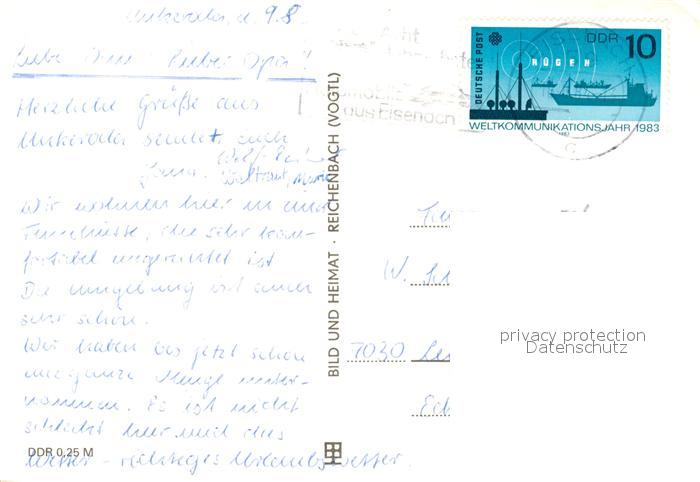 Unkeroda, d. 9.8.
Liebe Omi Lieber Opa!
Herzliche Grüße aus
Unkeroda sendet euch
Waltraut,
Wir wohnen hier in einer
Finnhütte, die sehr kom-
fortabel eingerichtet ist
Die Umgebung ist auch
sehr schön.
Wir haben bis jetzt schon
eine ganze Menge unter-
nommen. Es ist nicht
schlecht hier und das
Wetter - richtiges Urlaubswetter.
DDR 0,25 M
BILD UND HEIMAT · REICHENBACH (VOGTL)
aus Eisenach
DEUTSCHE POST
DDR 10
RÜGEN
WELTKOMMUNIKATIONSJAHR 1983
W.
7030
privacy protection
Datenschutz